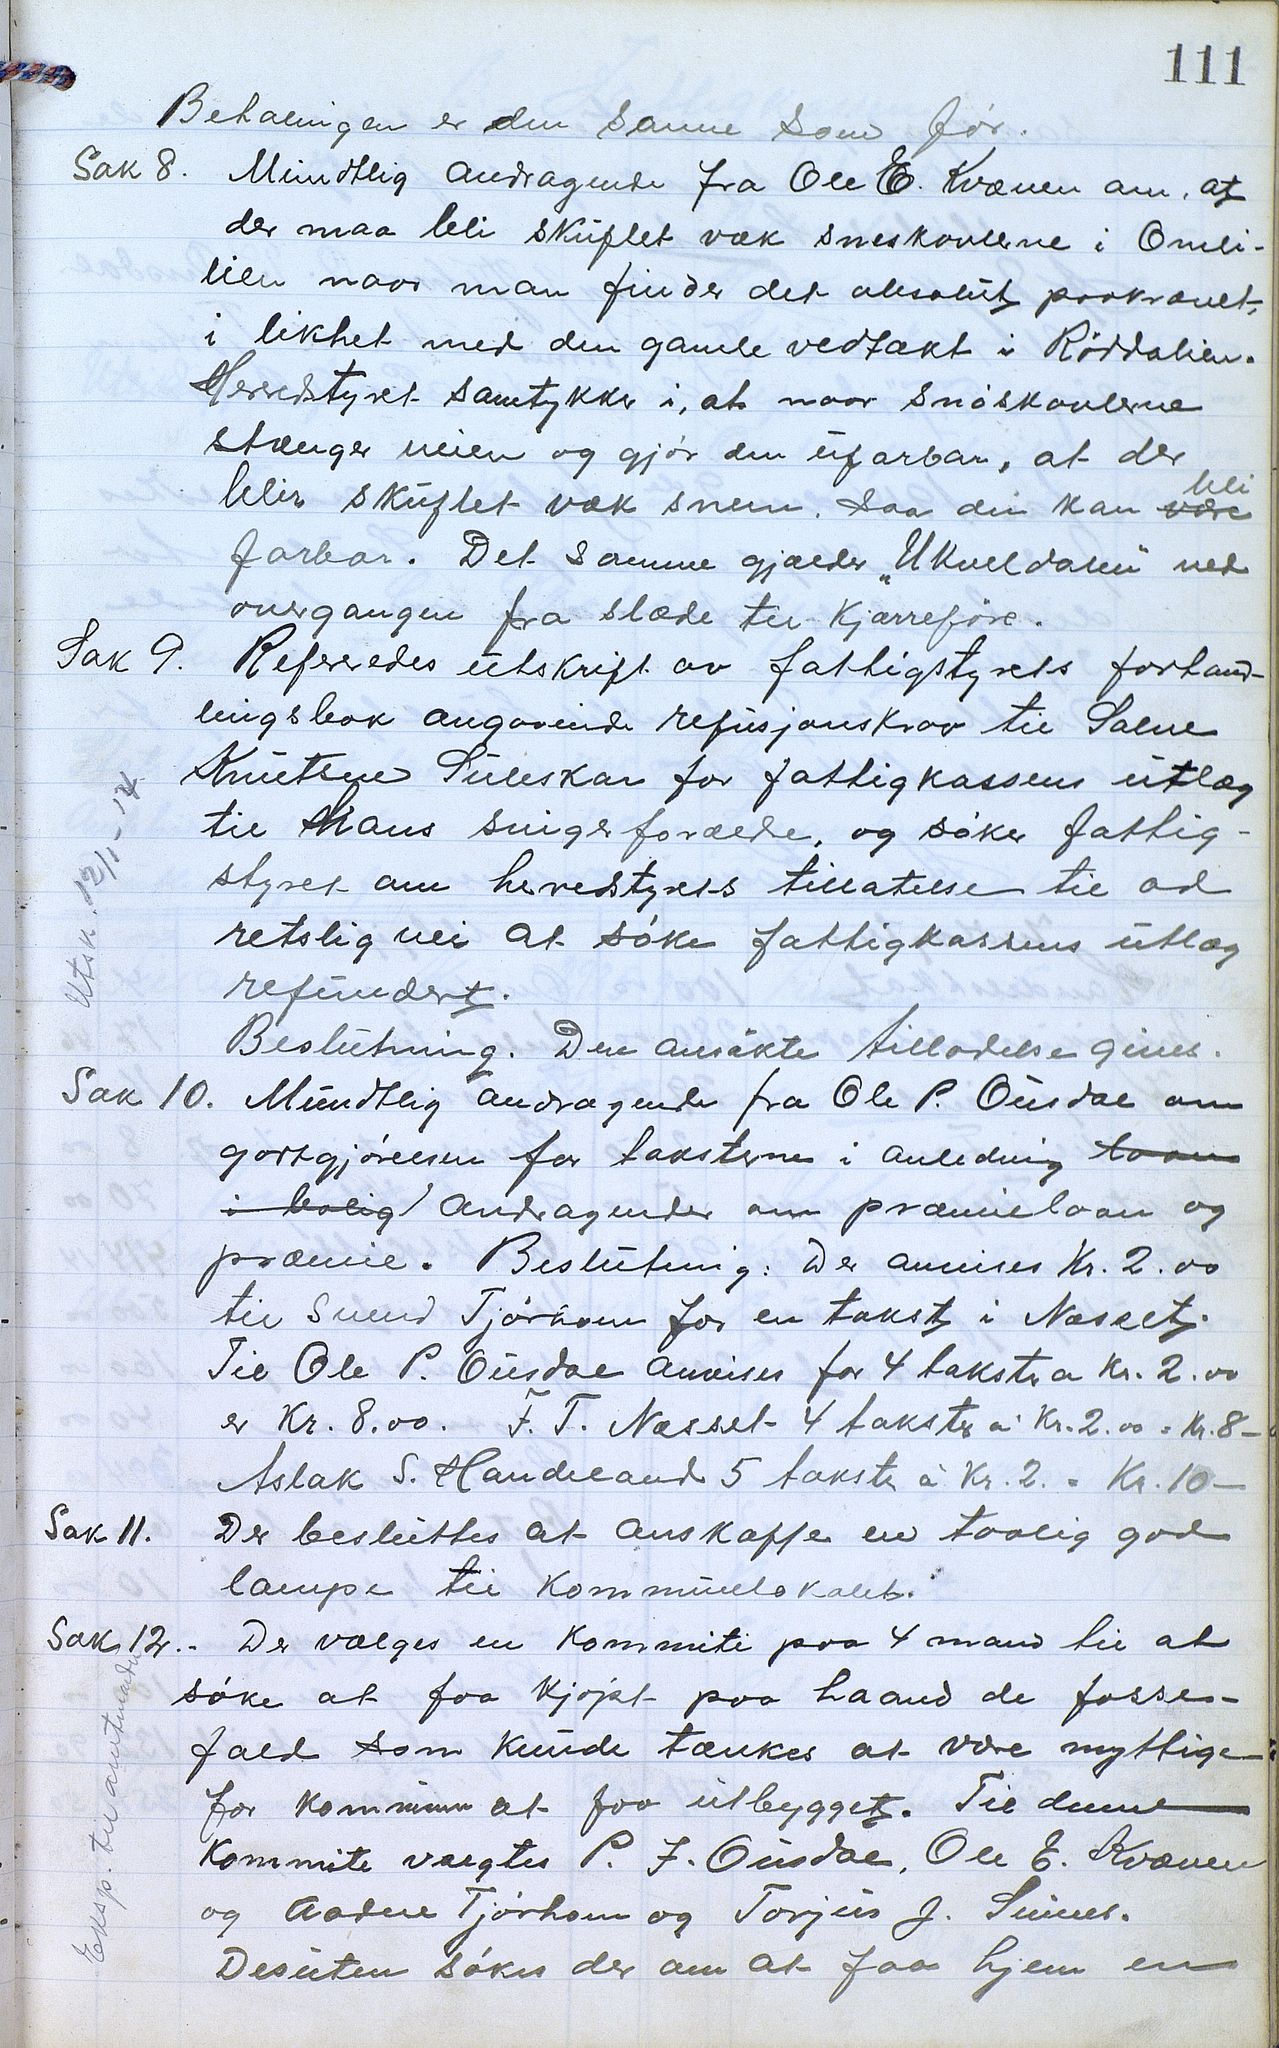 111
Betalingen er den samme som før.
Sak 8. Mundtlig andragende fra Ole E. Kvæven om, at
der maa bli skuflet væk sneskovlerne i Omli-
lien naar man finder det absolut paakrævet,
i likhet med den gamle vedtækt i Røddalien.
Herredstyret samtykker i, at naar snøskavlerne
stænger veien og gjør den ufarbar, at der
blir skuflet væk sneen, saa den kan bli være
farbar. Det samme gjælder „Ukveldalen" ved
overgangen fra slæde til kjærreføre.
Sak 9. Refereredes utskrift av fattigstyrets forhand-
lingsbok angaaende refusjonskrav til Salve
Knutsen Suleskar for fattigkassens utlæg
til Hans svigerforældre, og søker fattig-
styret om herredstyrets tillatelse til ad
retslig vei at søke fattigkassens utlæg
refundert.
Utsk. 12/1-14
Beslutning. Den ansøkte tilladelse gives.
Sak 10. Mundtlig andragende fra Ole P. Ousdal om
godtgjørelsen for taksterne i anledning laan
i bolig/ andragender om præmielaan og
præmie. Beslutning: Der anvises Kr. 2.00
til Svend Tjørhom for en takst i Nesset.
Til Ole P. Ousdal anvises for 4 takster a Kr. 2.00
er Kr. 8.00. F. T. Nesset 4 takster a Kr. 2.00 = Kr. 8 –
Aslak S. Handeland 5 takster à Kr. 2. = Kr. 10 –
Sak 11. Der besluttes at anskaffe en taalig god
lampe til kommunelokalet.
Sak 12. - Der vælges en kommite paa 4 mand til at
søke at faa kjøpt paa haand de fosse-
fald som kunde tænkes at være nyttige
for kommunen at faa utbygget. Til denne
kommite valgtes P. F. Ousdal, Ole E. Kvæven
og Aadne Tjørhom og Torjus J. Sinnes.
Eksp. til amtmanden
Desuten søkes der om at faa hjem en